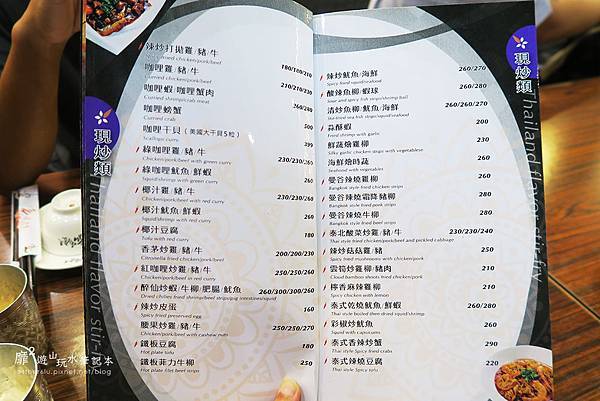 現炒類
Thailand flavor stir-fry
辣炒打拋雞/豬/牛
180/180/210
咖哩雞/豬/牛
Curried chicken/pork/beef
210/210/230
咖哩蝦/咖哩蟹肉
Curried shrimp/crab meat
260/280
咖哩螃蟹
Curried crab
500
咖哩干貝（美國大干貝5粒）
Scallop curry
399
綠咖哩雞/豬/牛
Chicken/pork/beef with green curry
230/230/260
綠咖哩魷魚/鮮蝦
Squid/shrimp with green curry
260
椰汁雞/豬/牛
Chicken/pork/beef with red curry
230/230/260
椰汁魷魚/鮮蝦
Squid/shrimp with red curry
260
椰汁豆腐
Tofu with red curry
180
香茅炒雞/豬/牛
Citronella fried chicken/pork/beef
200/200/230
紅咖哩炒雞/豬/牛
Chicken/pork/beef in red curry
250/250/260
醉仙炒蝦/牛柳/肥腸/魷魚
260/300/300/260
Dried chilies fried shrimp/beef strips/pig intestines/squid
辣炒皮蛋
Spicy fried preserved egg
160
腰果炒雞/豬/牛
Chicken/pork/beef with cashew nuts
250/250/270
鐵板豆腐
Hot plate tofu
180
鐵板菲力牛柳
Hot plate filet beef strips
250
現炒類
Thailand flavor stir-fry
辣炒魷魚/海鮮
Spicy fried squid/seafood
260/270
酸辣魚柳/蝦球
Sour and spicy fish strips/shrimp ball
260/280
清炒魚柳/魷魚/海鮮
260/260/270
蒜酥蝦
Fried shrimp with garlic
200
鮮蔬燴雞柳
Silky garlic chicken strips with vegetables
260
海鮮燴時蔬
Seafood with vegetables
260
曼谷辣燒雞柳
Bangkok style fried chicken strips
280
曼谷辣燒霜降豬柳
Bangkok style fried pork strips
280
曼谷辣燒牛柳
Bangkok style fried beef strips
280
泰北酸菜炒雞/豬/牛
230/230/240
Thai style fried chicken/pork/beef and pickled cabbage
辣炒菇菇雞/豬
Spicy fried mushrooms with chicken/pork
250
雲筍炒雞柳/豬肉
Cloud bamboo shoots fried chicken/pork
210
檸香麻辣雞柳
Spicy chicken with lemon
210
泰式乾燒魷魚/鮮蝦
260/280
Thai style boiled then dried squid/shrimp
彩椒炒魷魚
Squid with capsicums
260
泰式香辣炒蟹
Thai style Spicy fried crabs
290
泰式辣燒豆腐
Thai style Spicy tofu
220
靡's遊山玩水筆記本
pixnet.net/blog